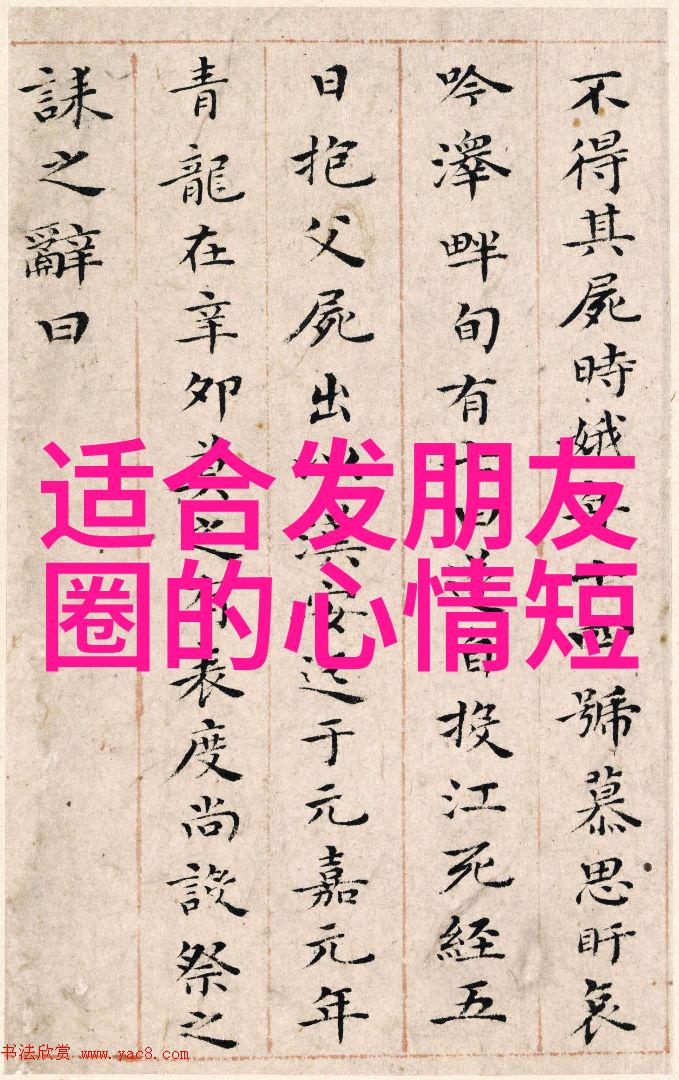 不得其屍時娥年十四號慕思盱哀
吟澤畔旬有七日遂自投江死經五
日抱父屍出以漢安迄于元嘉元年
青龍在辛卯莫之有表度尚設祭之
誄之辭曰
适合发朋友
圈的心情短
书法欣赏 www.yac8.com